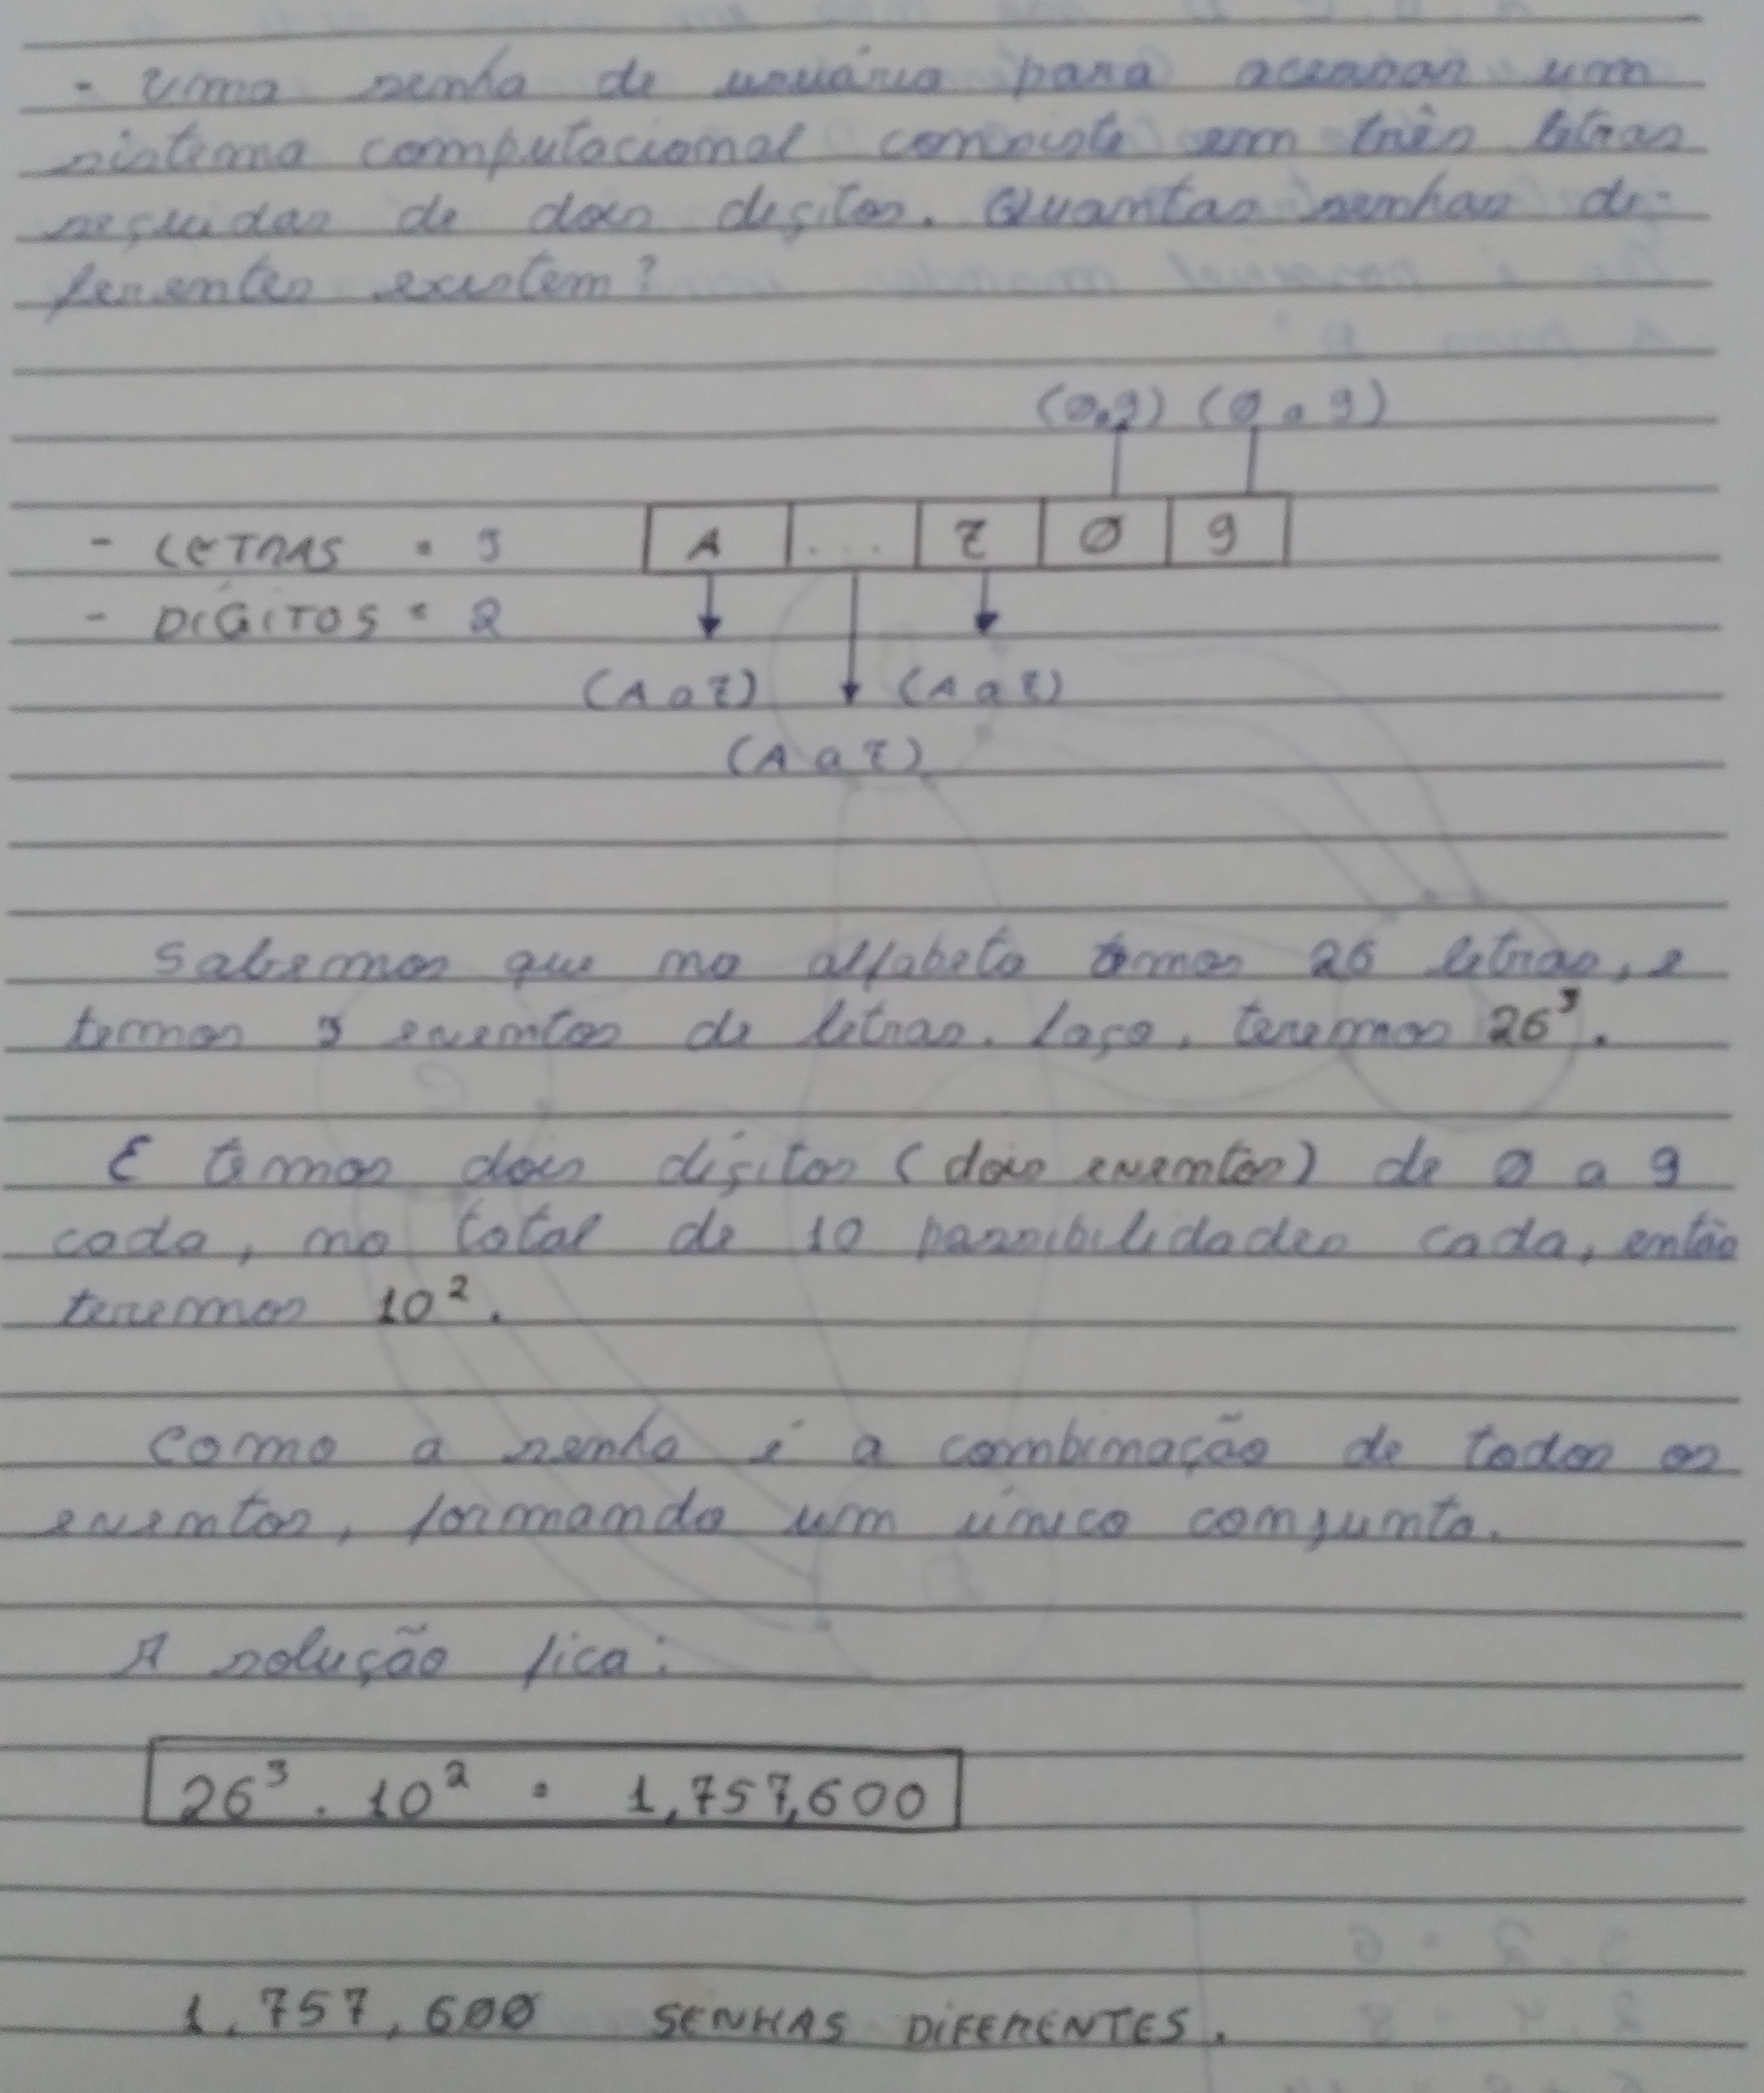 - Uma senha de usuário para acessar um
sistema computacional consiste em três letras
seguidas de dois dígitos. Quantas senhas di-
ferentes existem?
(0,9) (0 a 9)
- LETRAS = 3 A ... Z 0 9
- DÍGITOS = 2
(A a Z) (A a Z)
(A a Z)
Sabemos que no alfabeto temos 26 letras, e
temos 3 eventos de letras. Logo, teremos 26³.
E temos dois dígitos (dois eventos) de 0 a 9
cada, no total de 10 possibilidades cada, então
teremos 10².
Como a senha é a combinação de todos os
eventos, formando um único conjunto.
A solução fica:
26³ . 10² = 1,757,600
1,757,600 SENHAS DIFERENTES.